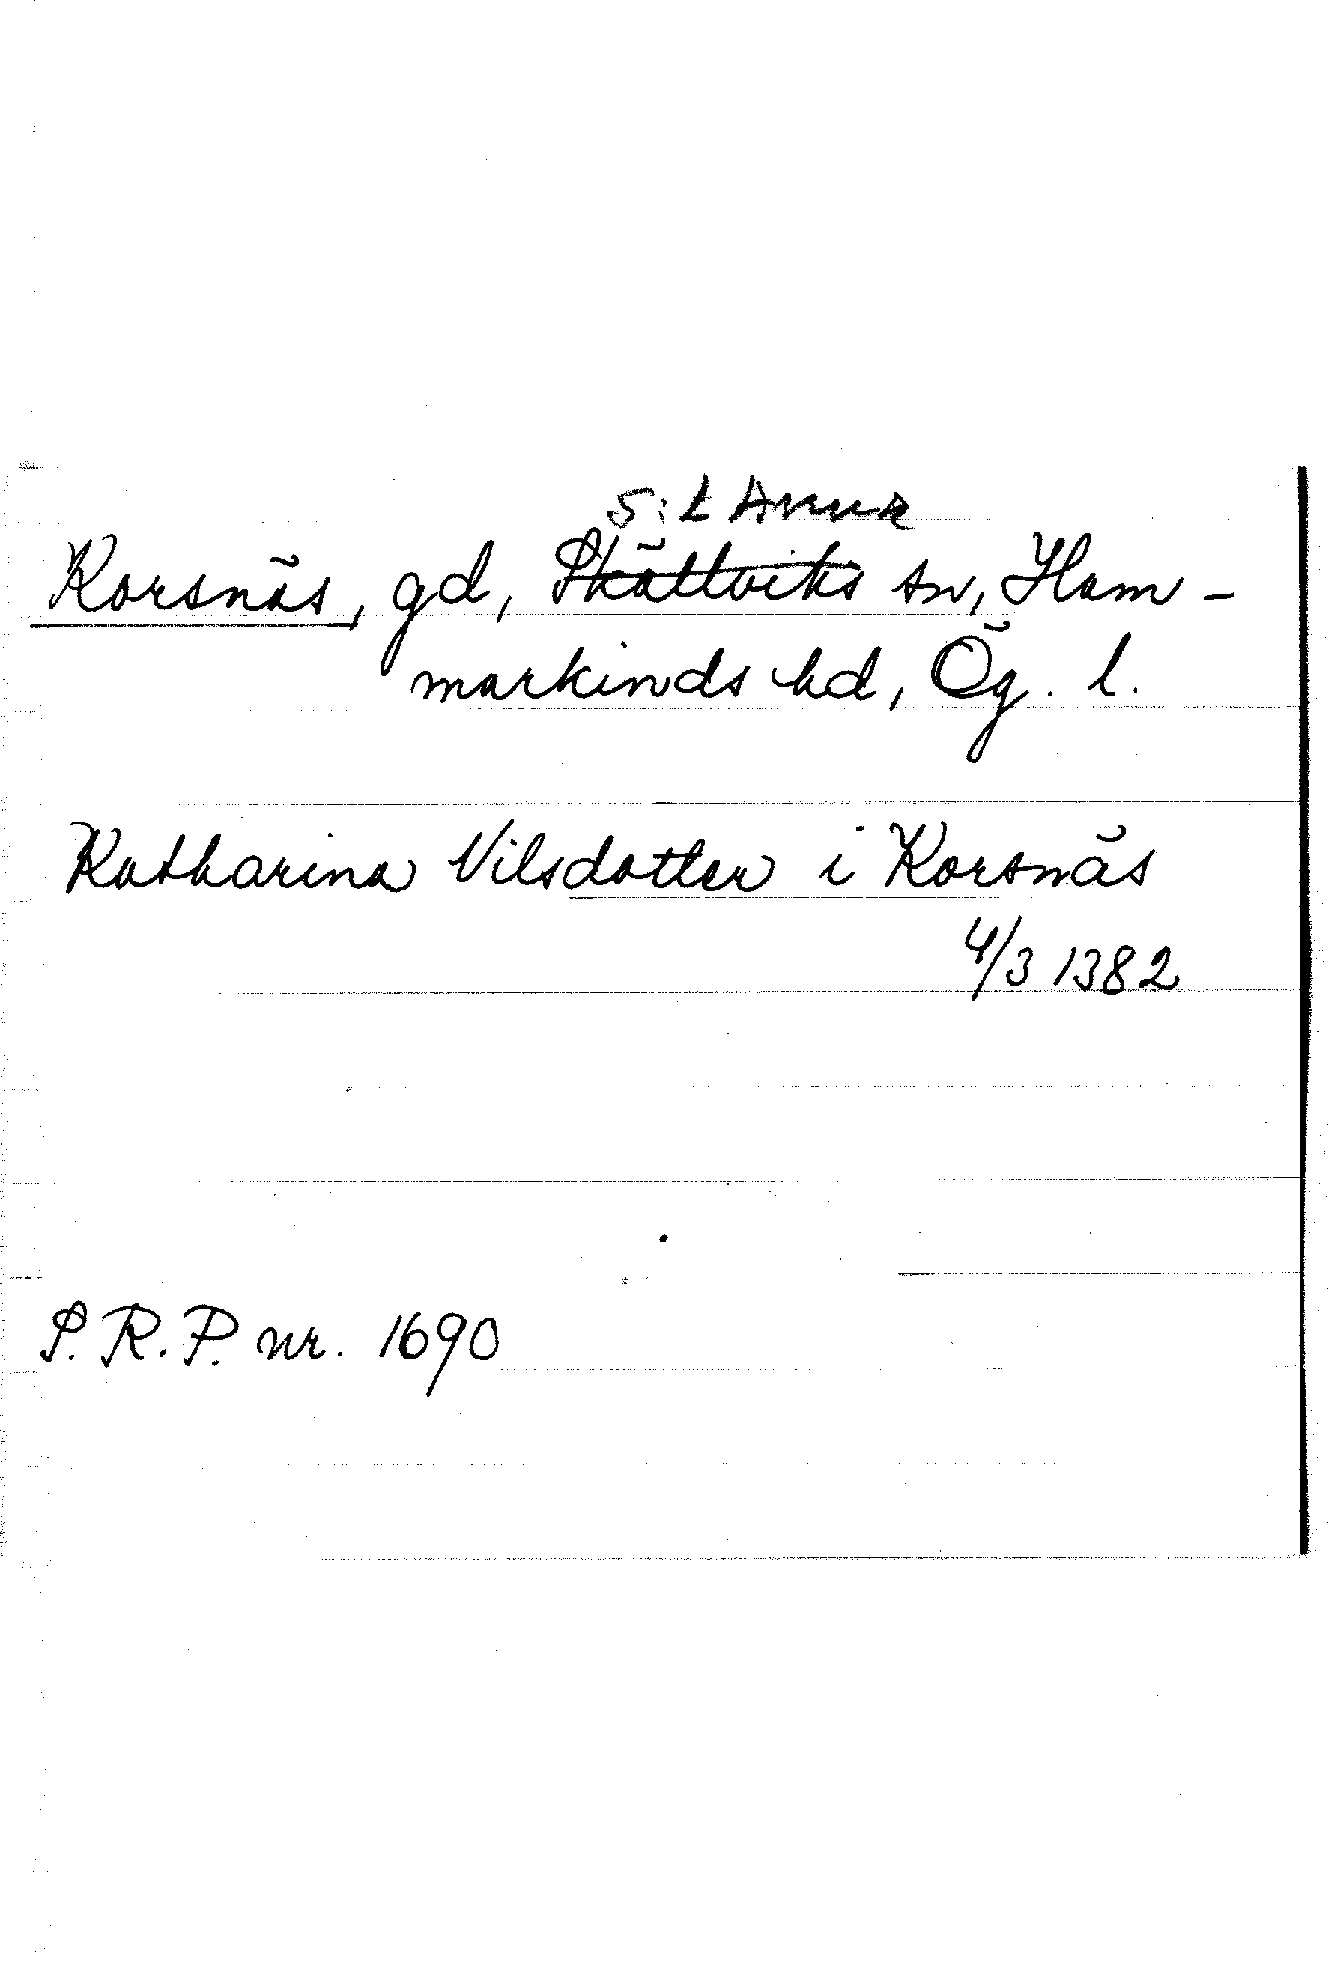 S:t Anna
Korsnäs, gd, Skällviks sn, Ham-
markinds hd, Ög. l.
Katharina Nilsdotter i Korsnäs
4/3 1382
S.R.P. nr. 1690